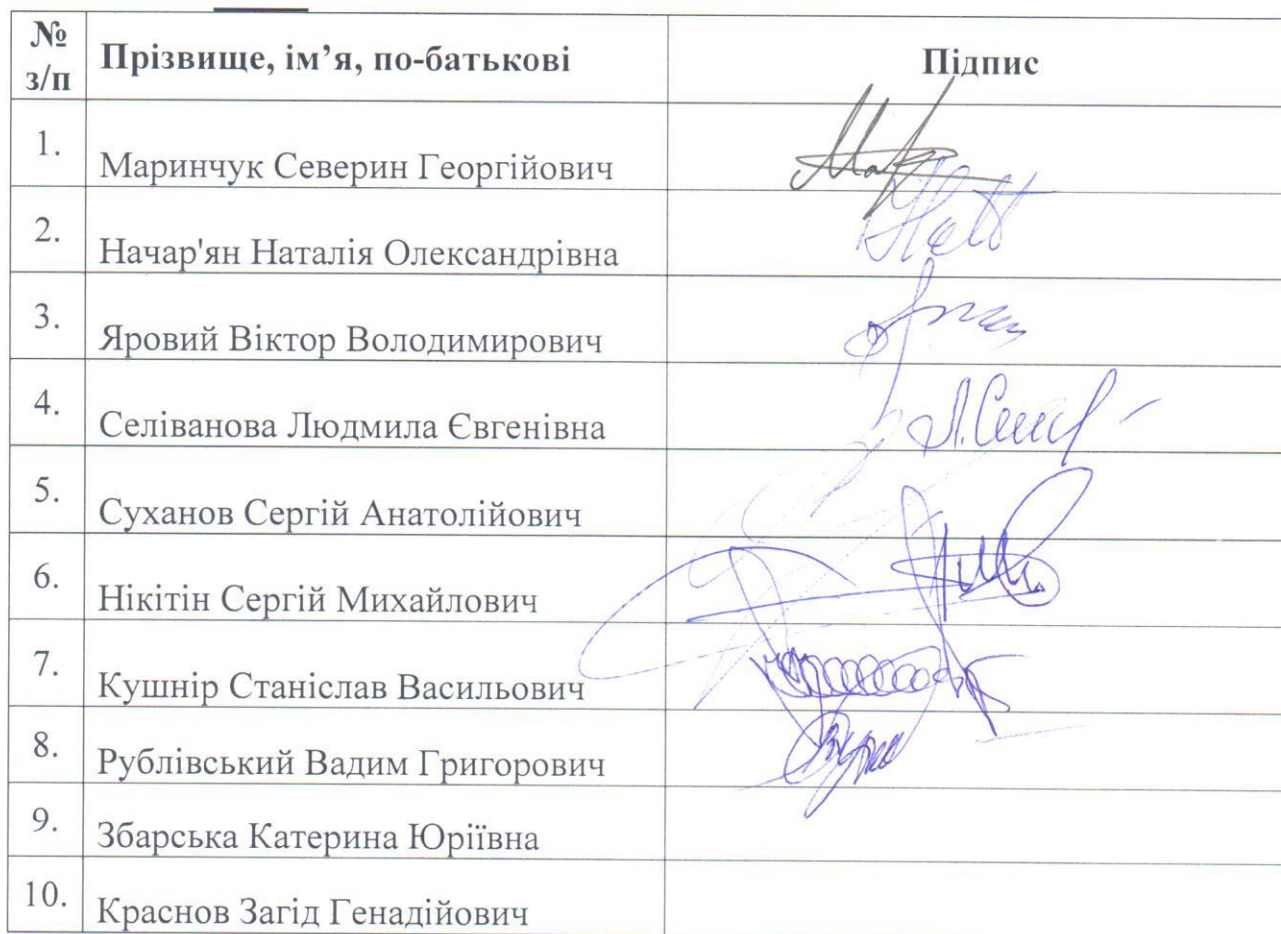 № з/п Прізвище, ім’я, по-батькові Підпис
1. Маринчук Северин Георгійович
2. Начар'ян Наталія Олександрівна
3. Яровий Віктор Володимирович
4. Селіванова Людмила Євгенівна
5. Суханов Сергій Анатолійович
6. Нікітін Сергій Михайлович
7. Кушнір Станіслав Васильович
8. Рублівський Вадим Григорович
9. Збарська Катерина Юріївна
10. Краснов Загід Генадійович